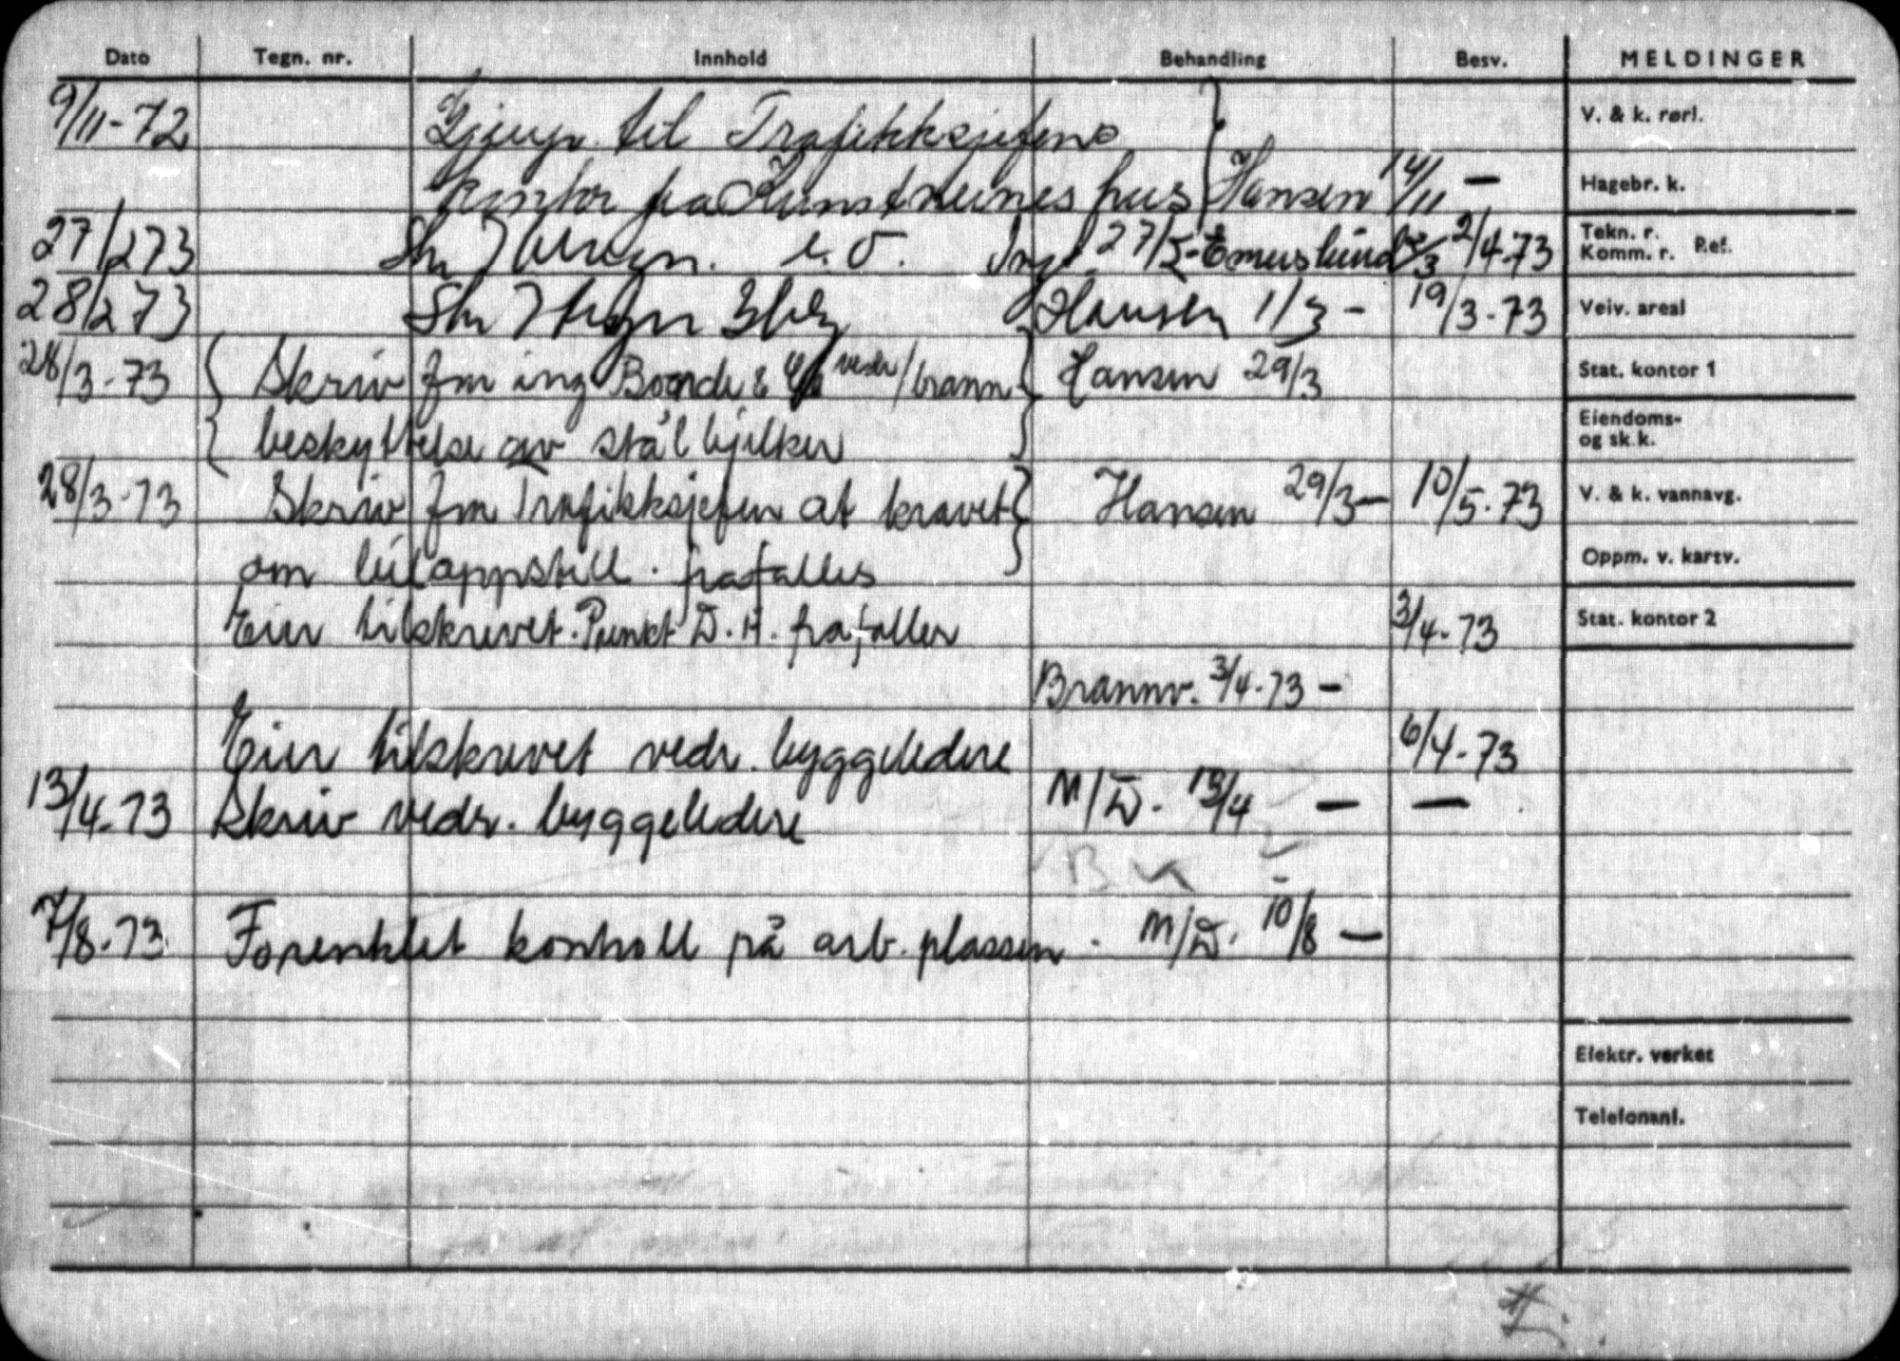 Dato Tegn. nr. Innhold Behandling Besv. MELDINGER
9/11-72 til Trafikksjefens
kontor fra Kunstnernes hus Hansen 14/11 -
27/2 73 27/2- 2/4-73
28/2 73 Hansen 1/3 - 19/3-73
28/3-73 Skriv fra ing Bonde & vedr/brann Hansen 29/3
beskyttelse av stålbjelker
28/3-73 Skriv fra Trafikksjefen at kravet Hansen 29/3- 10/5-73
om biloppstill. frafalles
Eier tilskrevet. Punkt D.H. frafaller 3/4-73
Brannv. 3/4-73 -
Eier tilskrevet vedr. byggeledere 6/4-73
13/4-73 Skriv vedr. byggeledere M/D. 13/4 - -
BK
7/8-73 Forenklet kontroll på arb. plassen. M/D. 10/8 -
V. & k. rørl.
Hagebr. k.
Tekn. r.
Komm. r. Ref.
Veiv. areal
Stat. kontor 1
Eiendoms-
og sk.k.
V. & k. vannavg.
Oppm. v. kartv.
Stat. kontor 2
Elektr. verket
Telefonanl.